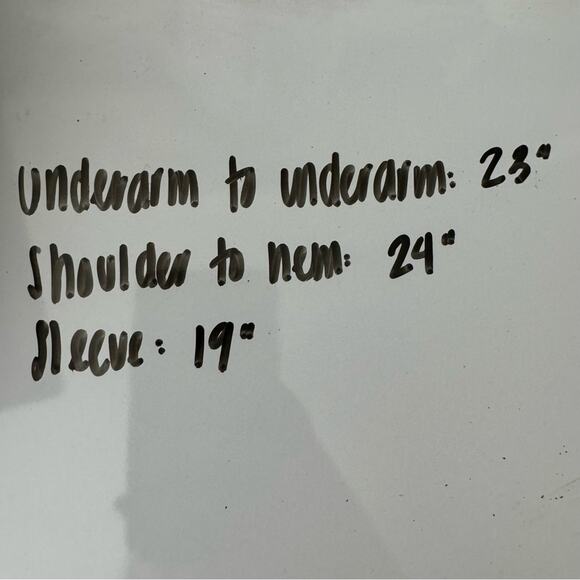 underarm to underarm: 23"
shoulder to hem: 24"
sleeve: 19"